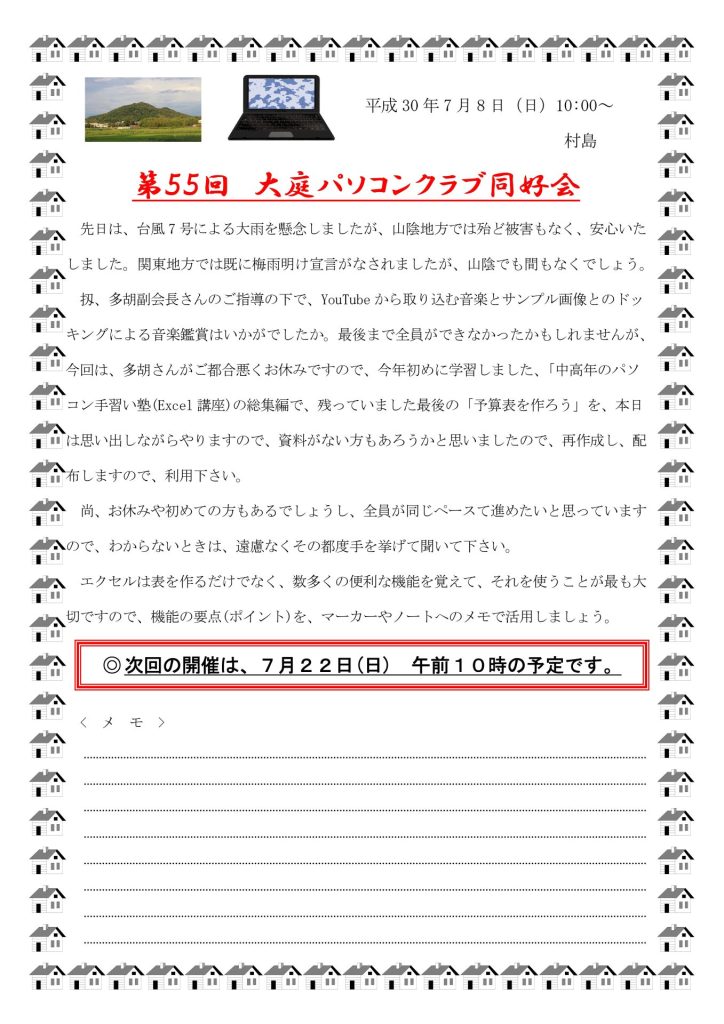 平成30年7月8日（日）10:00～
村島
第55回　大庭パソコンクラブ同好会
先日は、台風7号による大雨を懸念しましたが、山陰地方では殆ど被害もなく、安心いた
しました。関東地方では既に梅雨明け宣言がなされましたが、山陰でも間もなくでしょう。
扨、多胡副会長さんのご指導の下で、YouTubeから取り込む音楽とサンプル画像とのドッ
キングによる音楽鑑賞はいかがでしたか。最後まで全員ができなかったかもしれませんが、
今回は、多胡さんがご都合悪くお休みですので、今年初めに学習しました、「中高年のパソ
コン手習い塾(Excel講座)の総集編で、残っていました最後の「予算表を作ろう」を、本日
は思い出しながらやりますので、資料がない方もあろうかと思いましたので、再作成し、配
布しますので、利用下さい。
尚、お休みや初めての方もあるでしょうし、全員が同じペースて進めたいと思っています
ので、わからないときは、遠慮なくその都度手を挙げて聞いて下さい。
エクセルは表を作るだけでなく、数多くの便利な機能を覚えて、それを使うことが最も大
切ですので、機能の要点(ポイント)を、マーカーやノートへのメモで活用しましょう。
◎次回の開催は、７月２２日(日)　午前１０時の予定です。
＜　メ　モ　＞